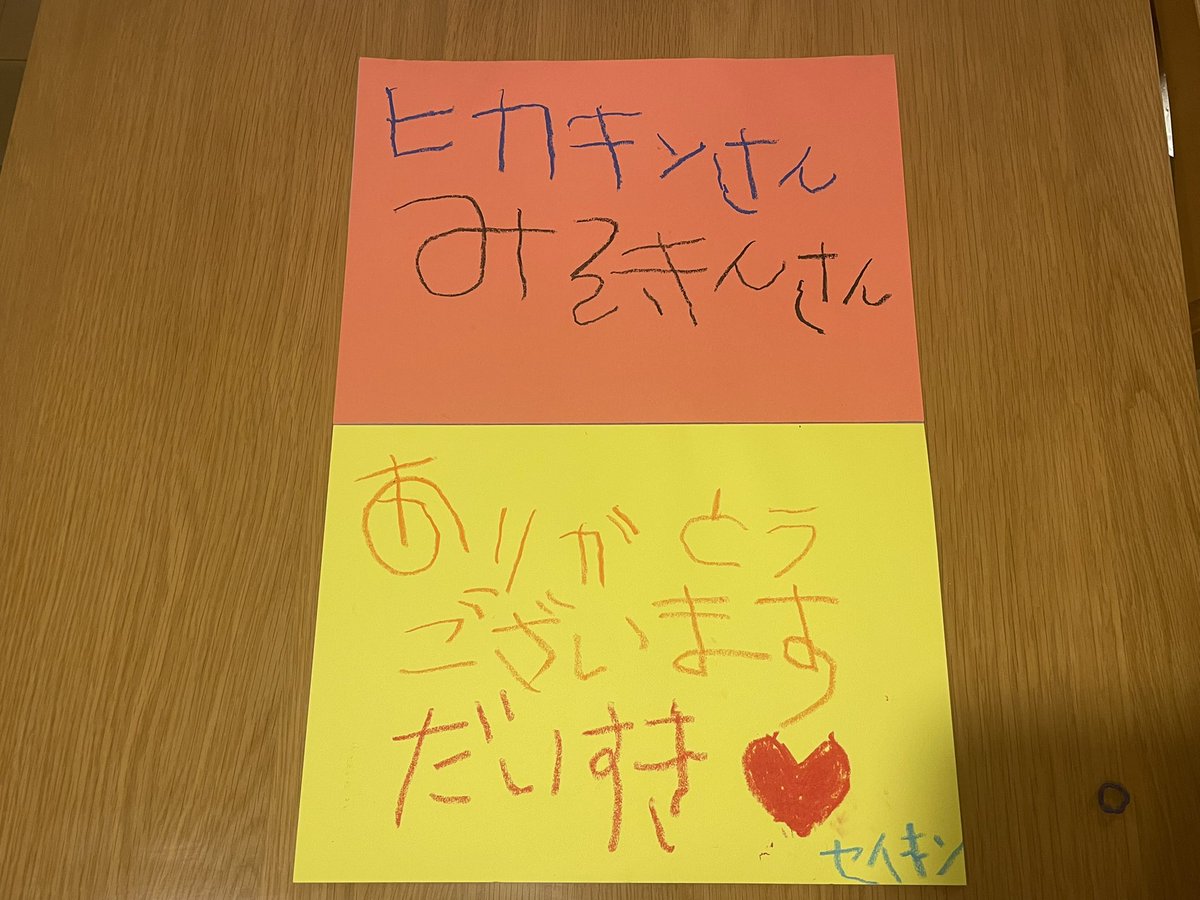 ヒカキンさん
みるきんさん
ありがとう
ございます
だいすき
セイキン